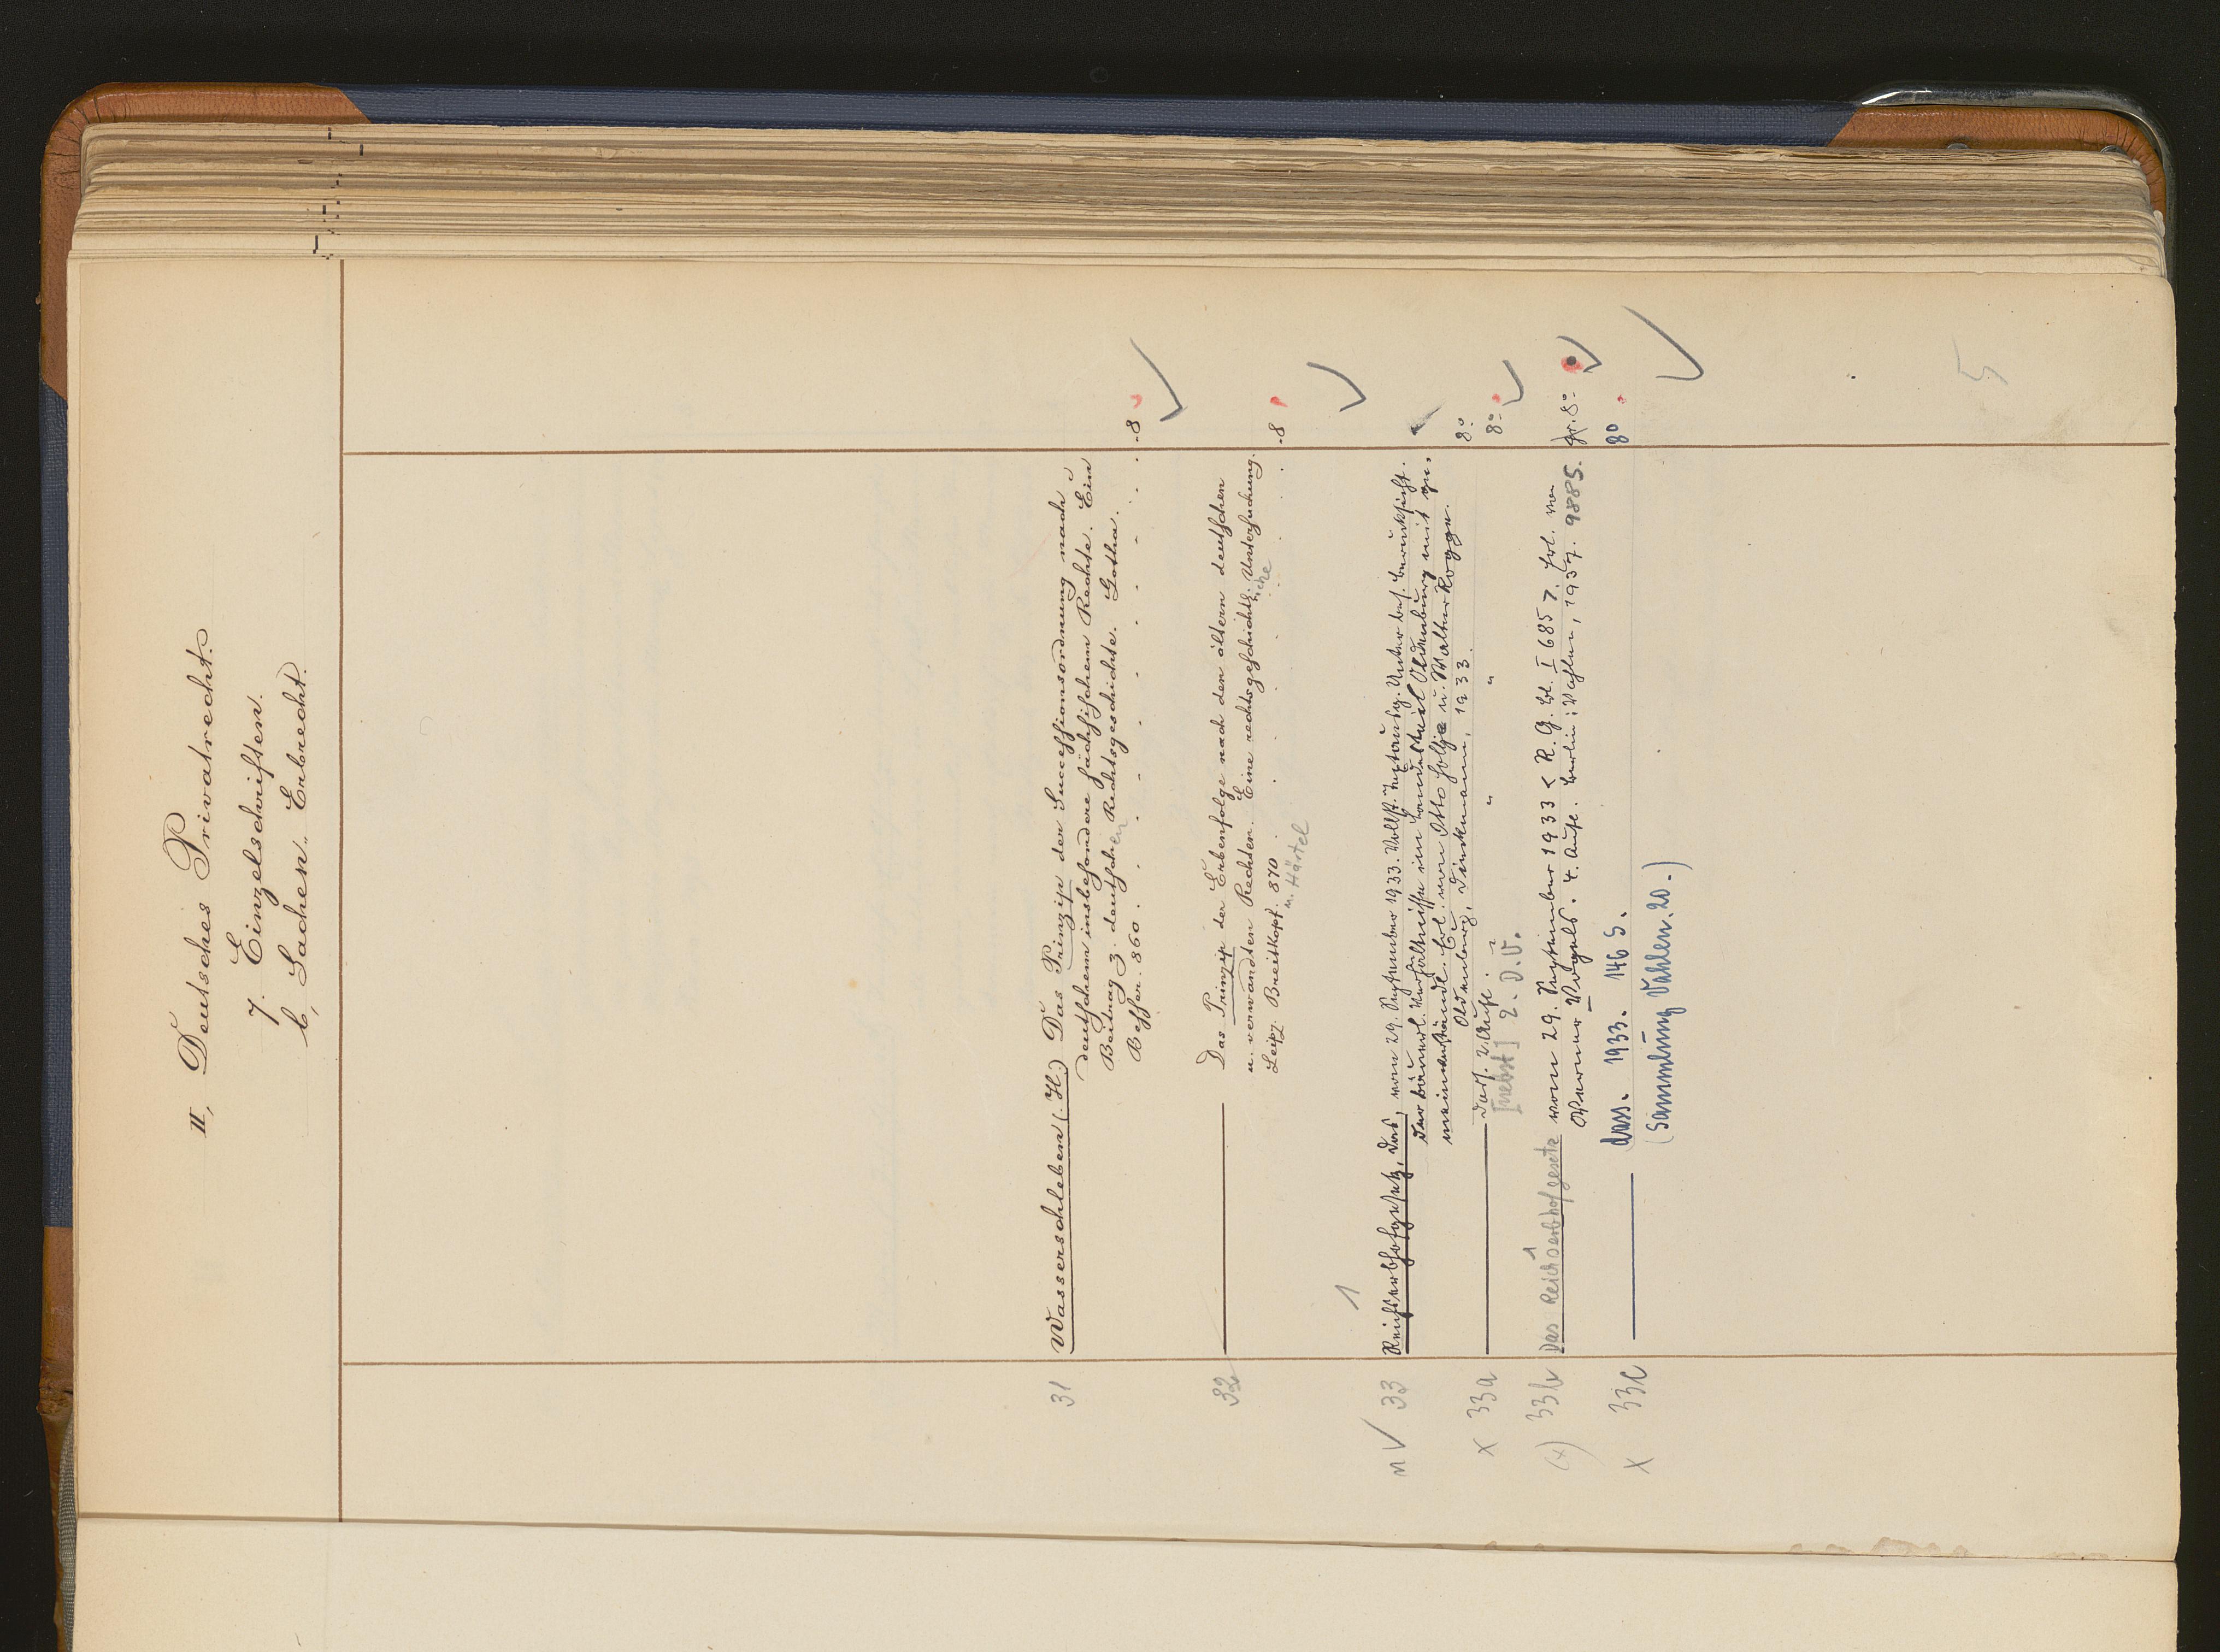 II, Deutsches Privatrecht.
7. Einzelschriften.
b, Sachen- Erbrecht.
31 Wasserschleben (H.) Das Prinzip der Successionsordnung nach
deutschem insbesondere sächsischem Rechte. Ein
Beitrag z. deutschen Rechtsgeschichte. Gotha.
Besser. 860. 8
32 Das Prinzip der Erbenfolge nach den ältern deutschen
u. verwandten Rechten. Eine rechtsgeschichtliche Untersuchung.
Leipz. Breitkopf. 870 8
u. Härtel
33 Reichserbhofgesetz, das, vom 29. September 1933. Unter bes. Berücksicht.
der bäuerl. Verhältnisse im Landesteil Oldenburg mit
Erl. von Otto u. Walter Rogge.
Oldenburg, 1933. 8°
x 33a Dass. 2. Aufl. " " 8°
[nebst] 2. D.V.
(x) 33b Das Reichserbhofgesetz vom 29. September 1933 < R. G. Bl. I 685 >. Erl. von
Werner Vogels. 4. Aufl. Berlin: Vahlen, 1937. 988 S. gr. 8°
x 33c dass. 1933. 146 S. 8°
(Sammlung Vahlen. 20.)
5